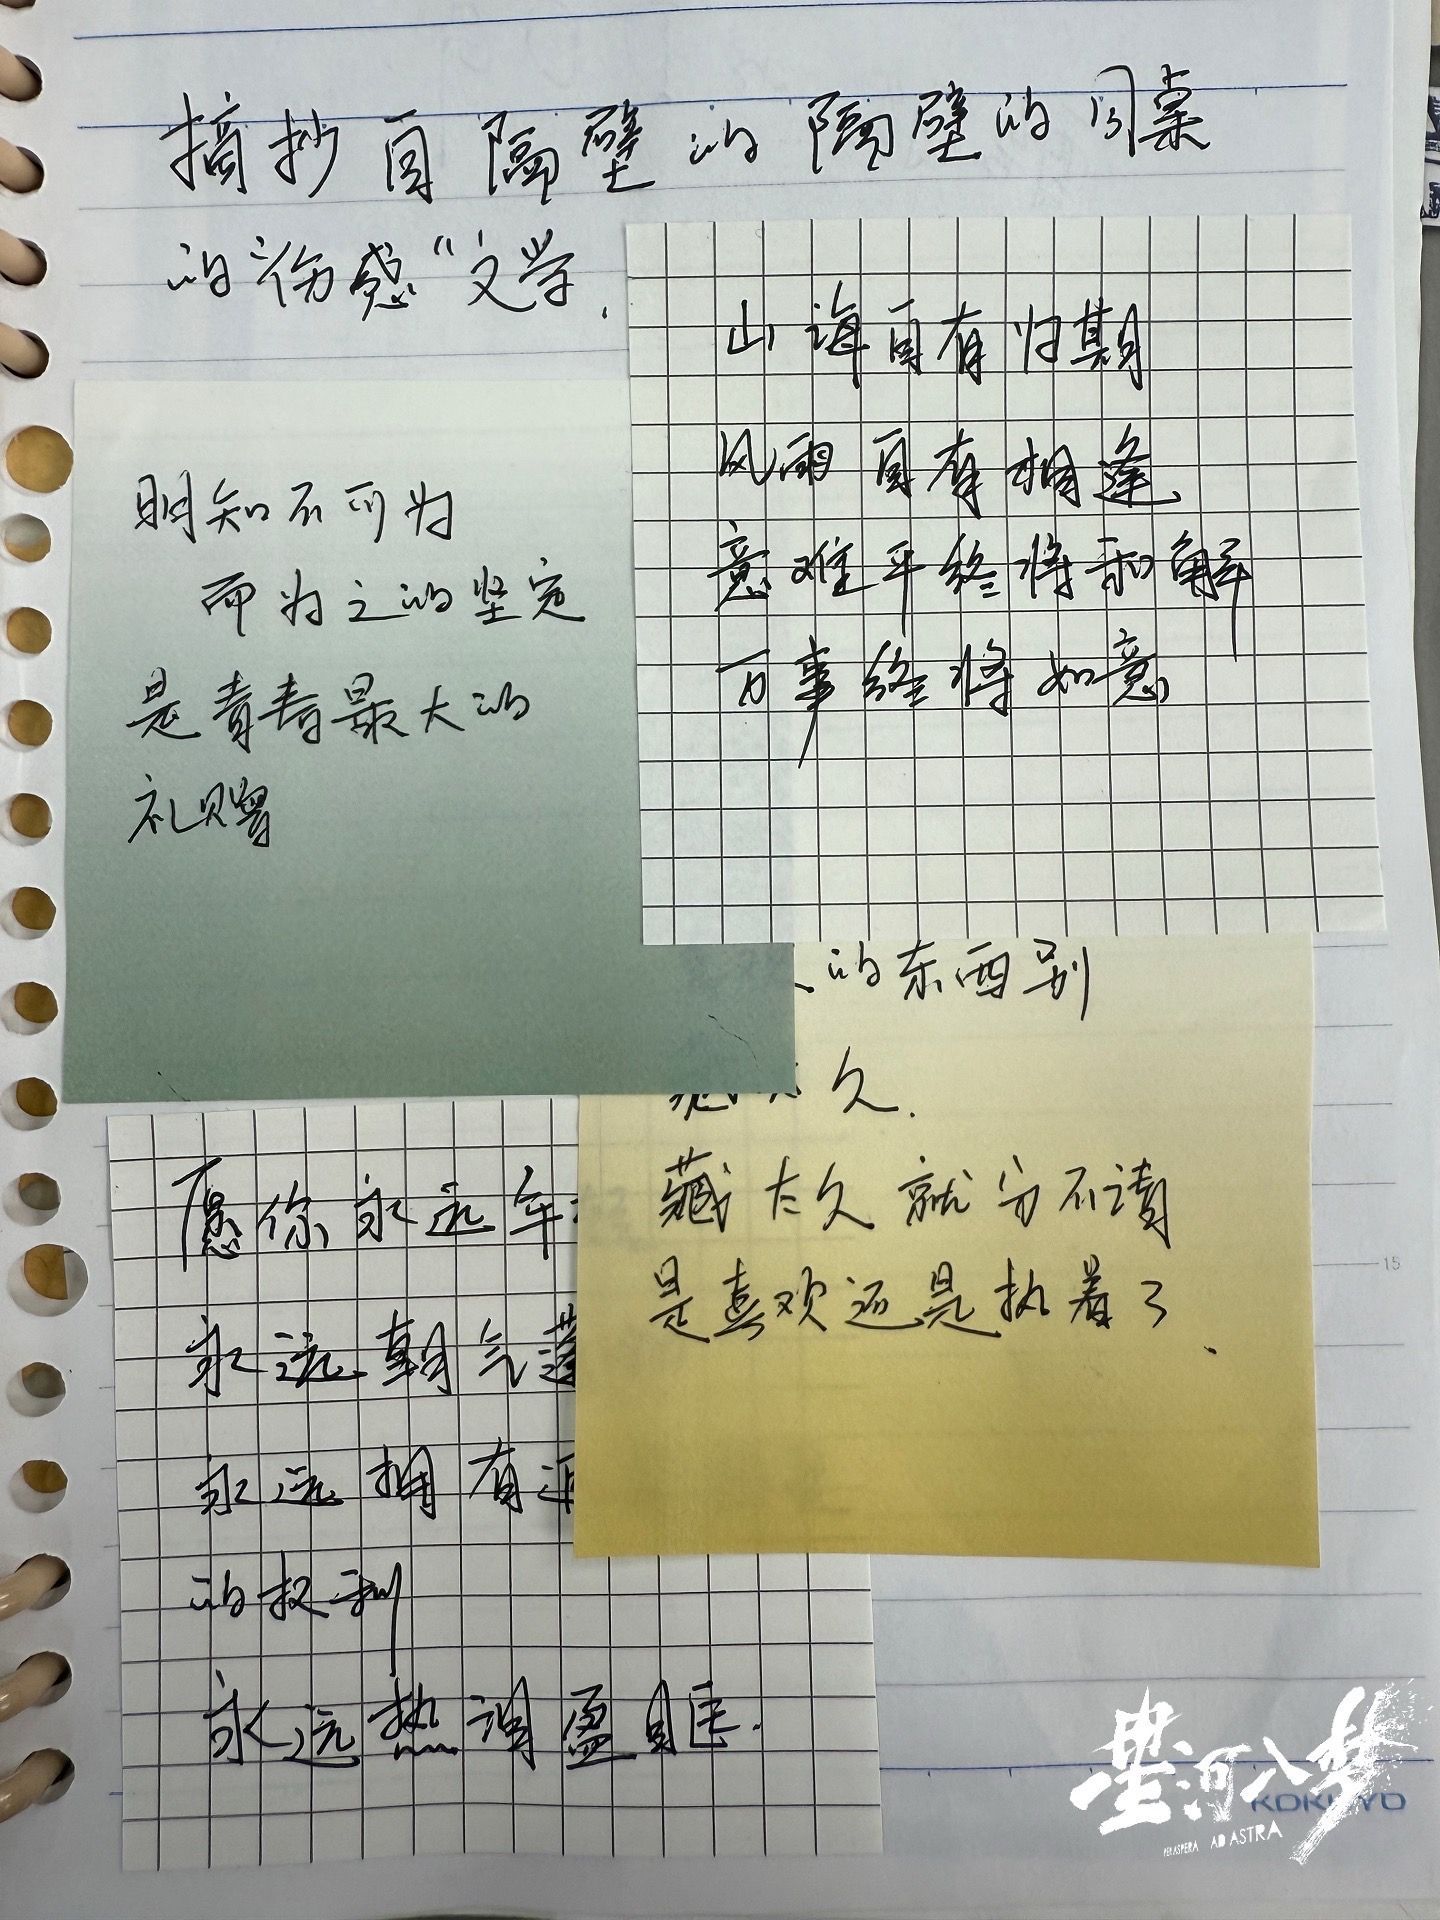 摘抄自隔壁的隔壁的同桌
的"伤感"文学.
山海自有归期
风雨自有相逢
意难平终将和解
万事终将如意
明知不可为
而为之的坚定
是青春最大的
礼赠
的东西别
藏太久.
藏太久就分不清
是喜欢还是执着了.
愿你永远年
永远朝气蓬
永远拥有
的权利
永远热泪盈眶.
15
星河入梦
PER ASPERA AD ASTRA
KOKUYO